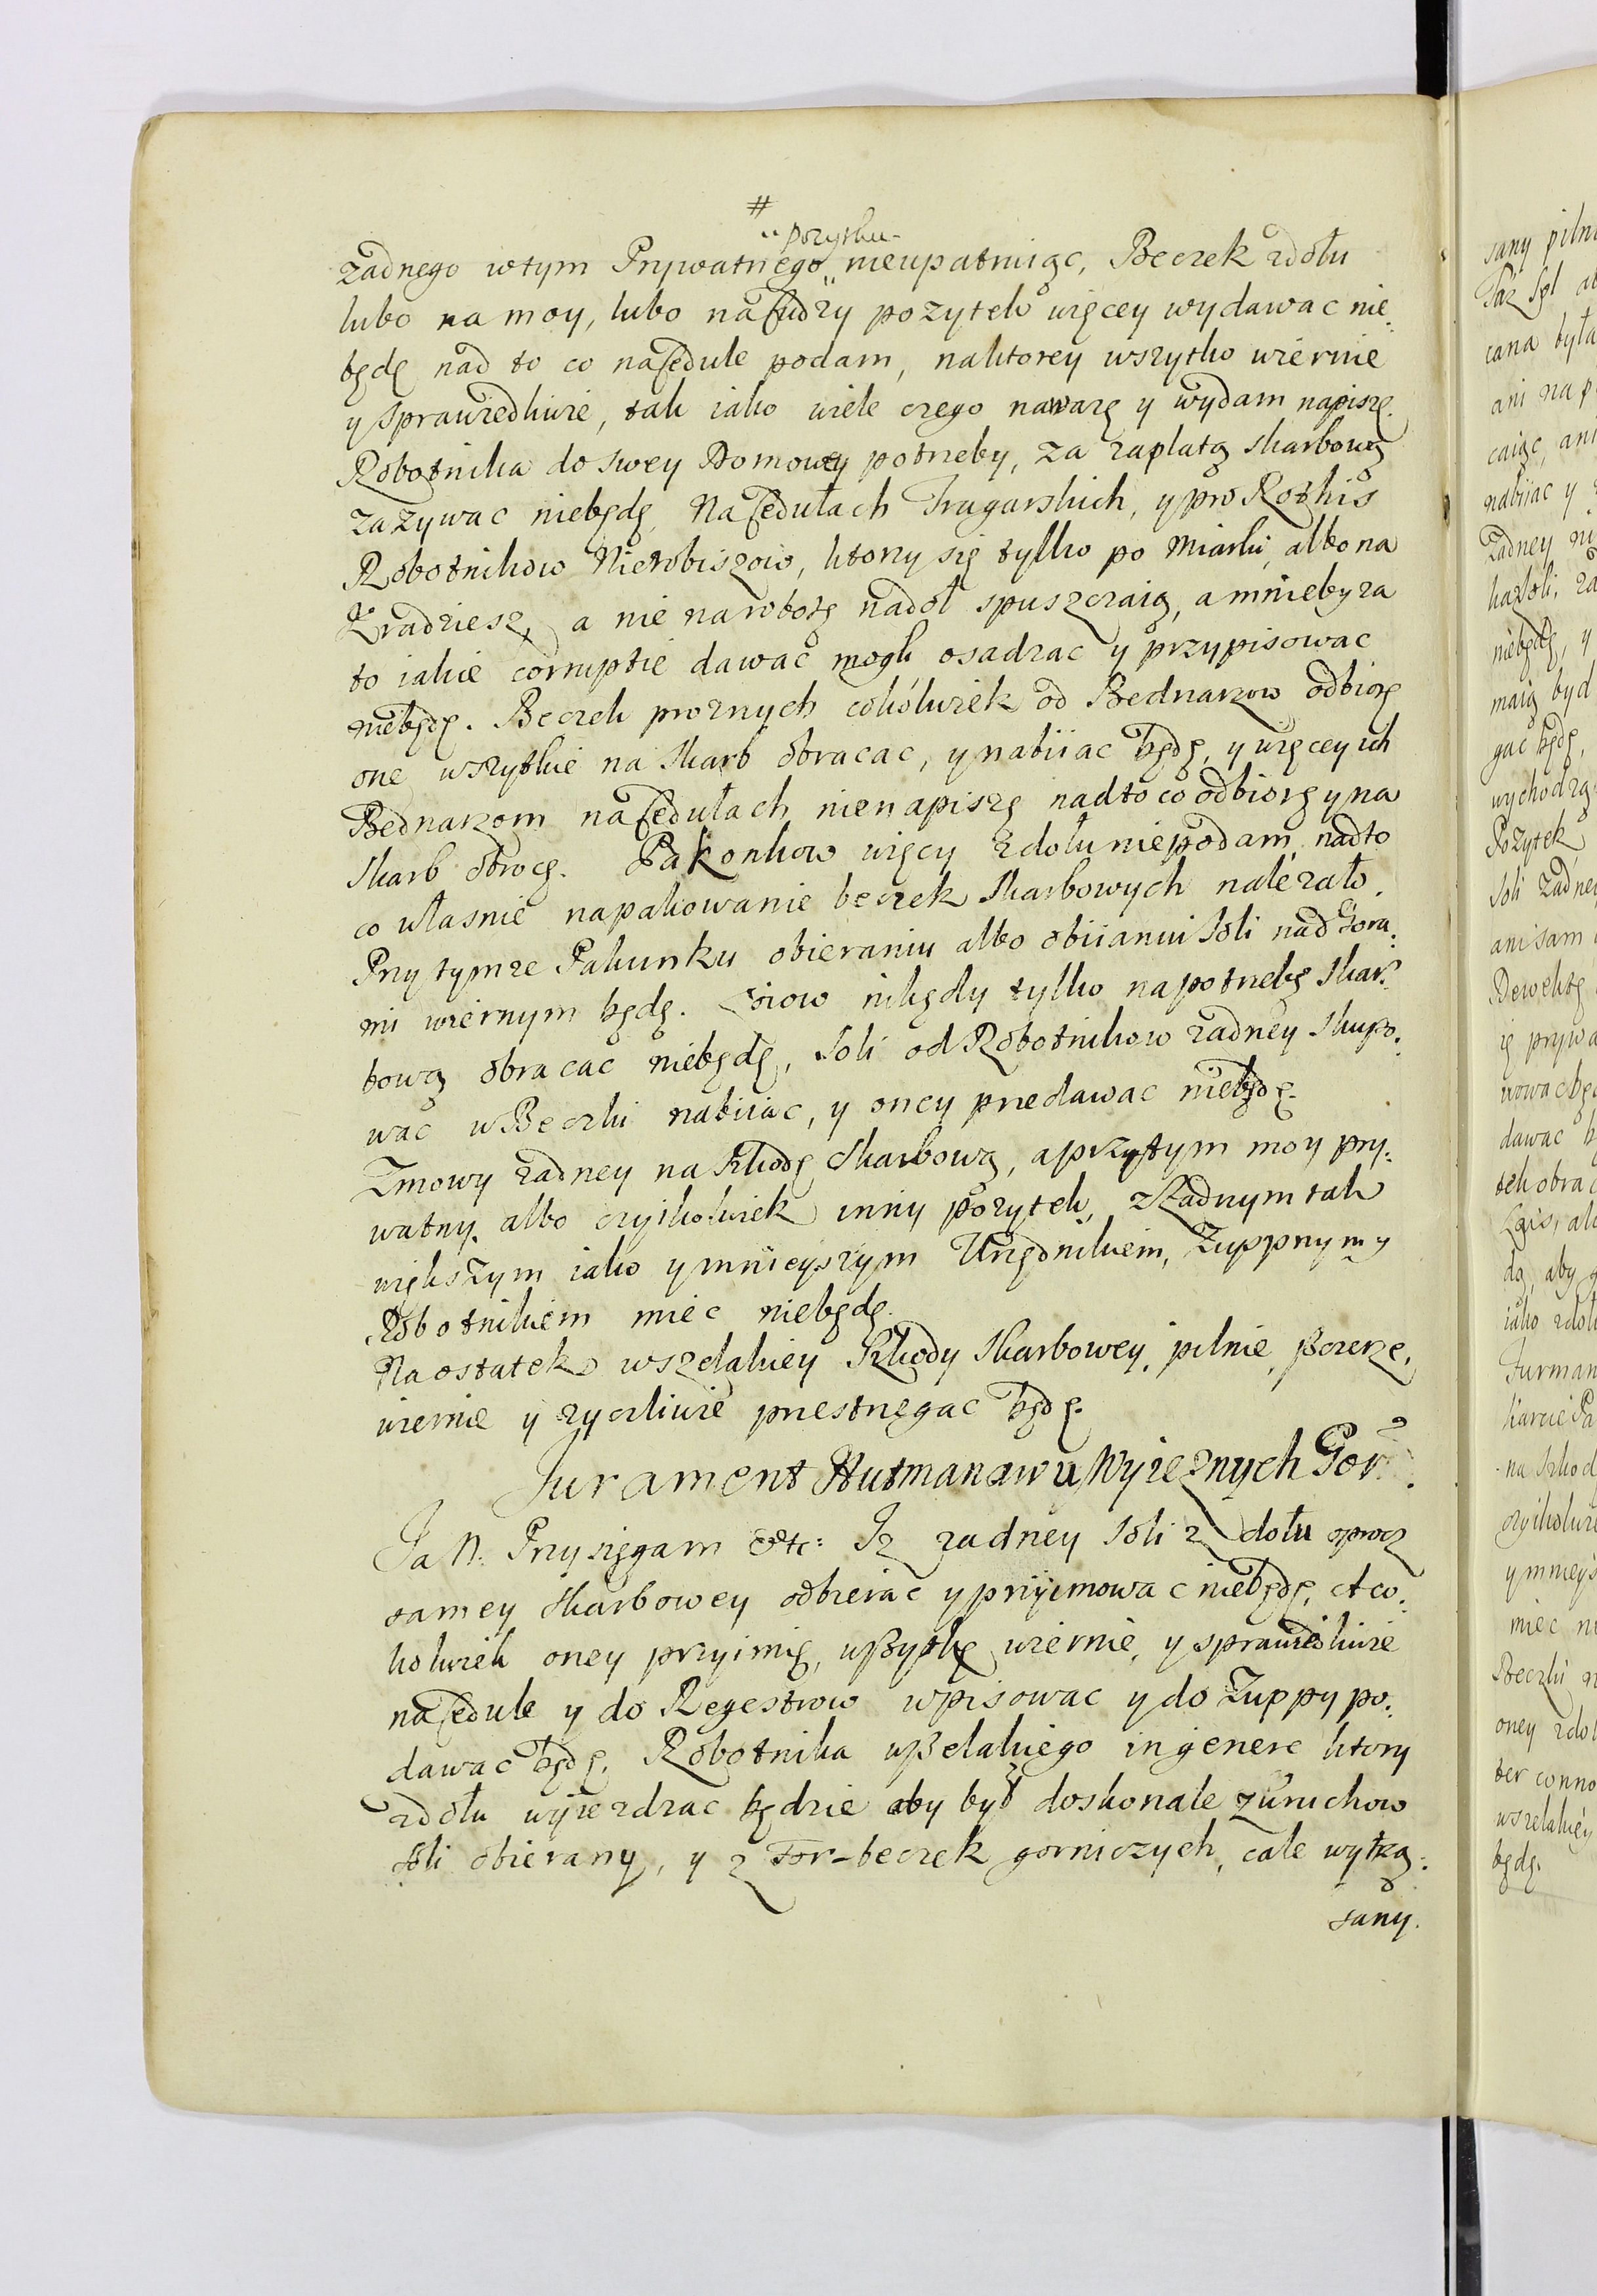 #
" pozytku
zadnego wtym Prywatnego " nieupatruiąc, Beczek zdołu
lubo na moy, lubo na cudzy pozytek więcey wydawac nie:
będę nad to co na cedule podam, naktorey wszytko wiernie
y sprawiedliwie, tak iako wiele czego nawarzę y wydam napiszę.
Robotnika do swey Domowey potrzeby, za zapłatą skarbową
zazywac niebędę, Na cedułach Tragarskich, y pro Rothis
Robotnikow Nierobiszow, ktorzy się tylko po Miarki albo na
Kradziesz, a nie narobotę nadoł spuszczaią, a mnieby za
to iakie corruptie dawac mogli osadzac y przypisowac
niebędę. Beczek proznych cokolwiek od Bednarzow odbiorę
one wszytkie na Skarb obracac, y nabiiac będę, y więcey ich
Bednarzom na cedułach nienapiszę nadto co odbiorę y na
Skarb obrocę. Pakonkow więcy zdołu niepodam nadto
co własnie napakowanie beczek Skarbowych nalezało.
Przy tymze Pakunku obieraniu albo obiianiu Soli nad Gora:
mi wiernym będę. Łoiow nikędy tylko napotrzebę Skar:
bową obracac niebędę, Soli od Robotnikow zadney Skupo:
wac wBeczki nabiiac, y oney przedawac niebędę.
Zmowy zadney na Szkodę Skarbową, aprzytym moy pry:
watny albo czyikolwiek inny pozytek, zZadnym tak
większym iako ymnieyszym Urzędnikiem, Zuppnym y
Robotnikiem miec niebędę.
Na ostatek wszelakiey Szkody Skarbowey, pilnie, szczerze,
wiernie y zyczliwie przestrzegac będę.
Jurament Hutmanaw uWyieznych Gor.
Ja N. Przysięgam etc: Iz zadney Soli z dołu oprocz
samey skarbowey odbierac y przyimowac niebędę. A co:
kolwiek oney przyimię, wszytkę wiernie, y sprawiedliwie
na cedule y do Regestrow wpisowac y do Zuppy po:
dawac będę. Robotnika wszelakiego in genere ktory
zdołu wyiezdzac będzie aby był doskonale zuruchow
soli obierany, y z Tor-beczek gorniczych, cale wytrzą:
sany.